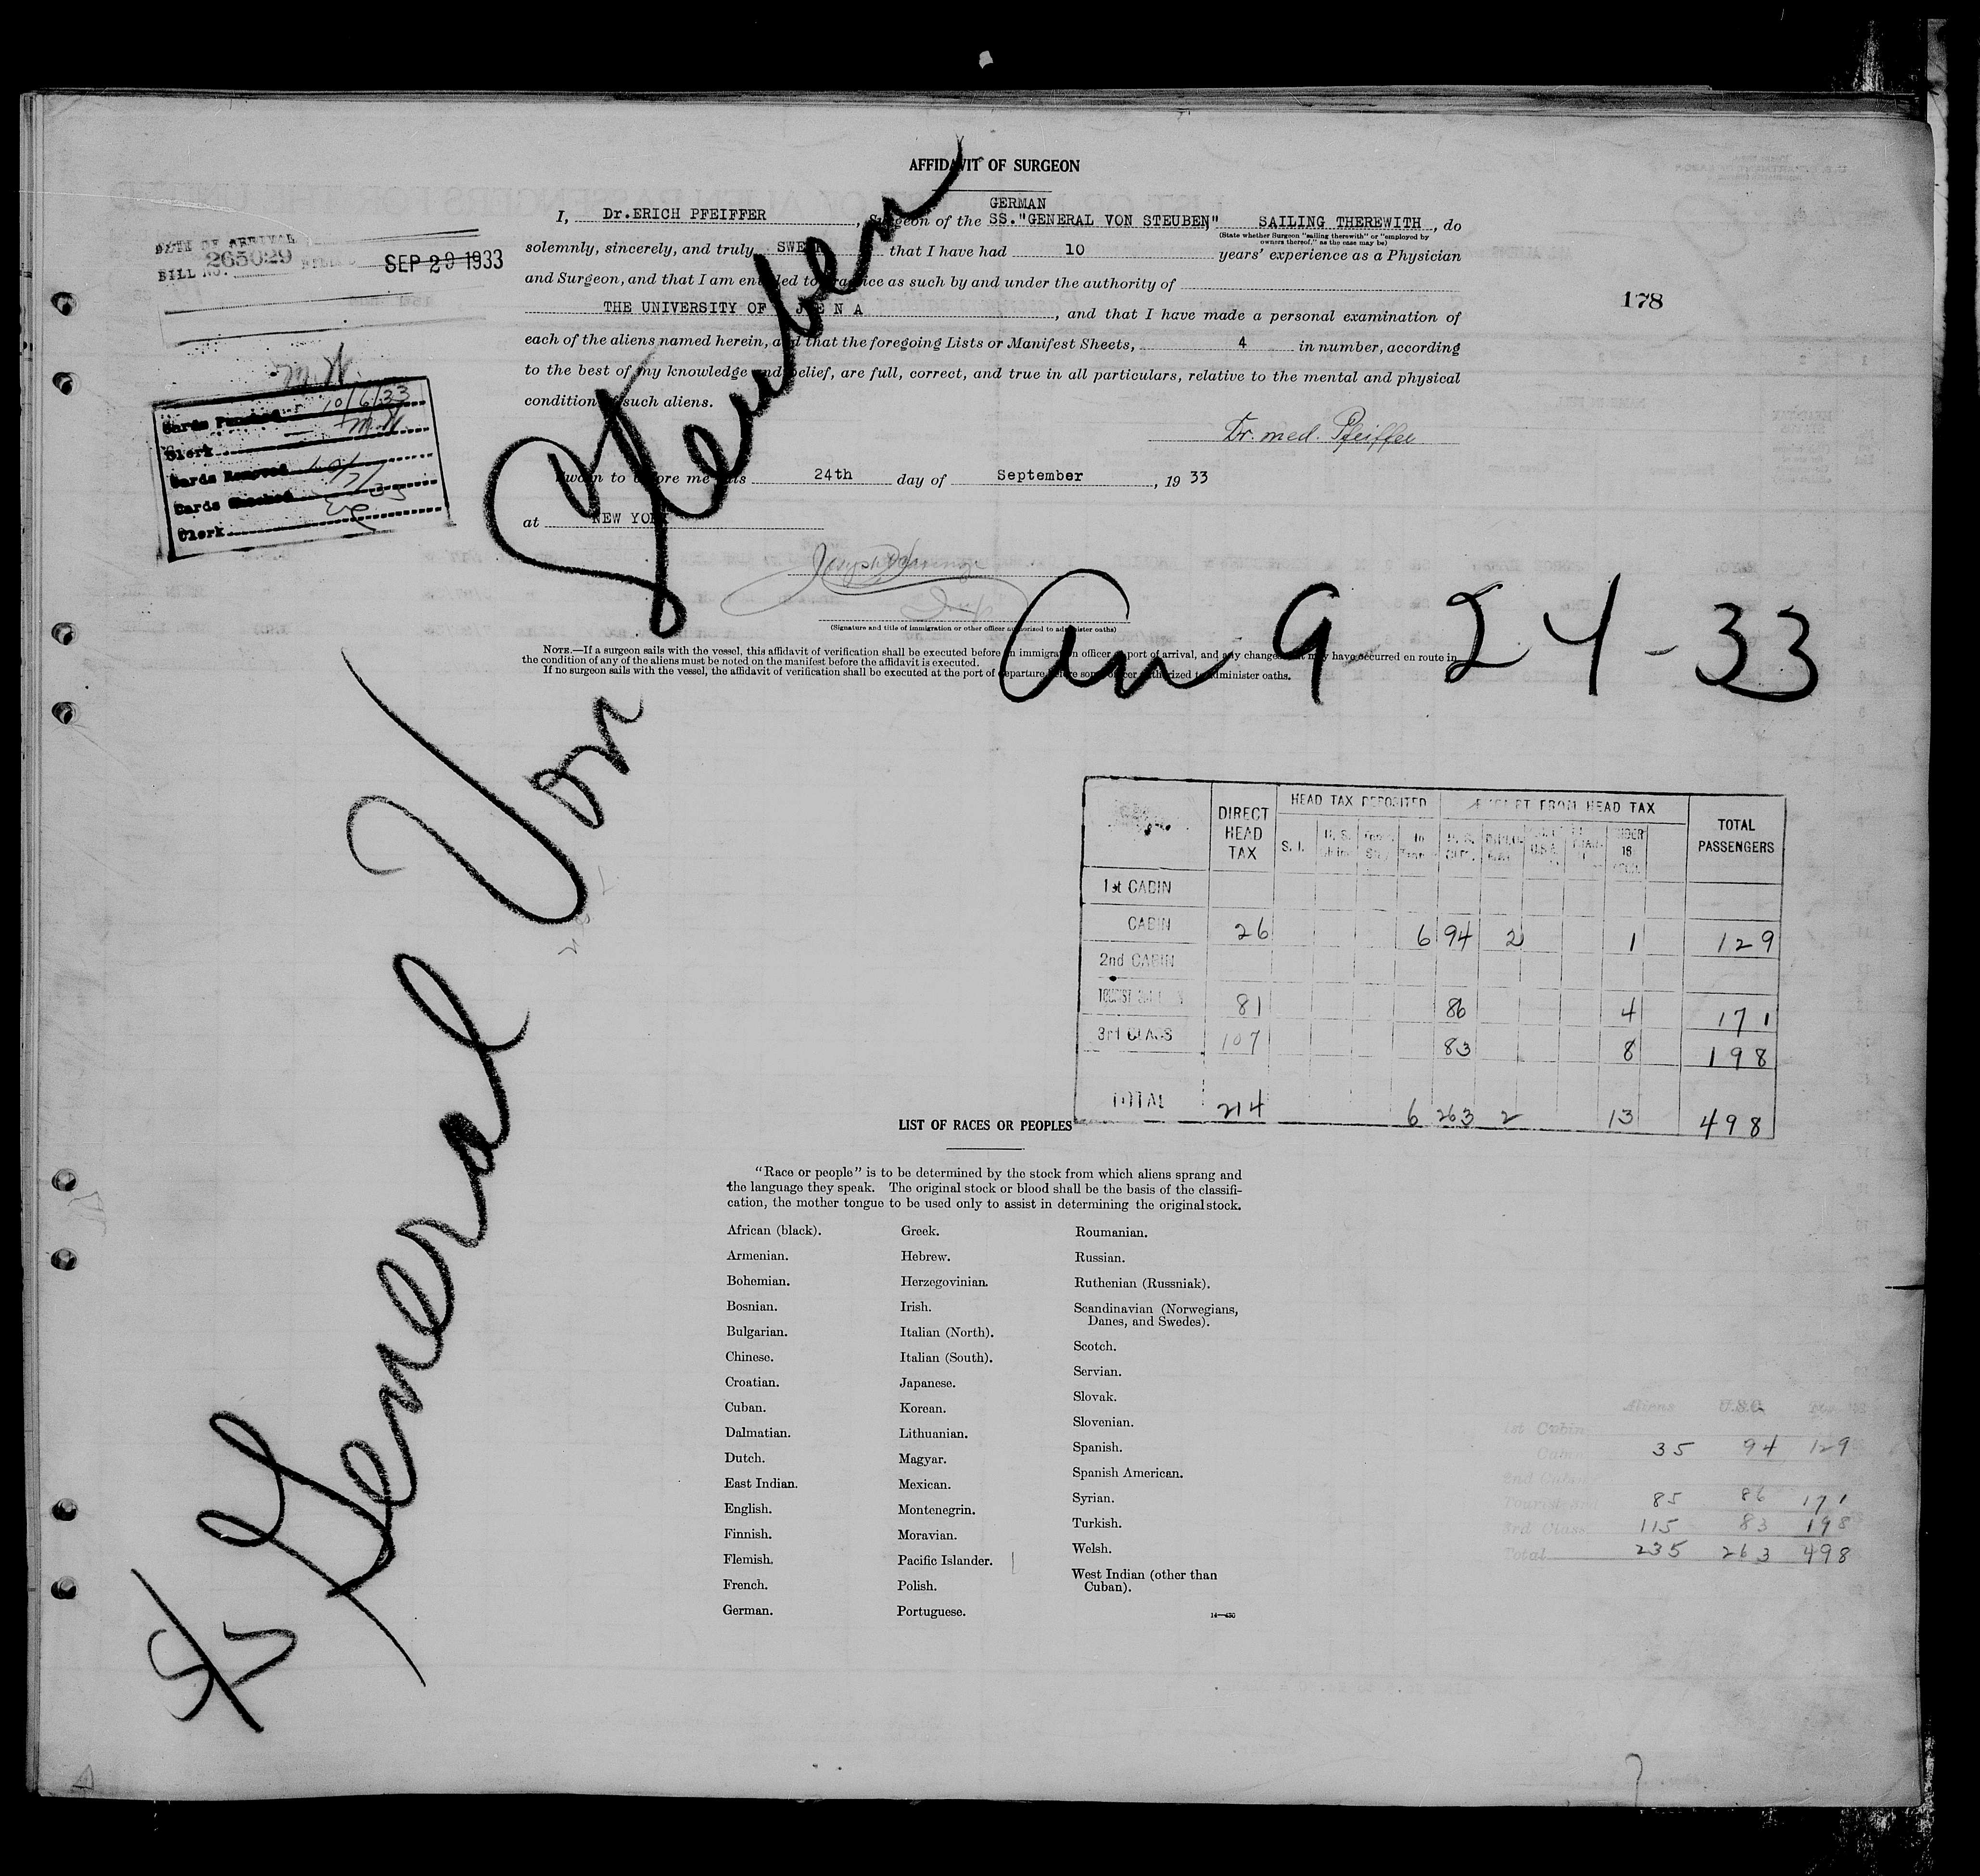 AFFIDAVIT OF SURGEON
I, Dr.ERICH PFEIFFER, Surgeon of the GERMAN SS."GENERAL VON STEUBEN" SAILING THEREWITH, do
(State whether Surgeon "sailing therewith" or "employed by owners thereof," as the case may be)
solemnly, sincerely, and truly SWEAR that I have had 10 years' experience as a Physician
and Surgeon, and that I am entitled to practice as such by and under the authority of
THE UNIVERSITY OF J E N A, and that I have made a personal examination of
each of the aliens named herein, and that the foregoing Lists or Manifest Sheets, 4 in number, according
to the best of my knowledge and belief, are full, correct, and true in all particulars, relative to the mental and physical
condition of such aliens.
Dr. med. Pfeiffer
Sworn to before me this 24th day of September, 19 33
at NEW YORK
(Signature and title of immigration or other officer authorized to administer oaths)
NOTE.—If a surgeon sails with the vessel, this affidavit of verification shall be executed before an immigration officer at port of arrival, and any changes that may have occurred en route in
the condition of any of the aliens must be noted on the manifest before the affidavit is executed.
If no surgeon sails with the vessel, the affidavit of verification shall be executed at the port of departure before some officer authorized to administer oaths.
DATE OF ARRIVAL
BILL NO. 265029
SEP 29 1933
178
M.W.
Cards Punched 10/6/33
Clerk M.W.
Cards Removed 10/7/
Cards Checked 33
Clerk
S/S General Von Steuben
Arr 9 24-33
DIRECT HEAD TAX
HEAD TAX DEPOSITED
EXEMPT FROM HEAD TAX
TOTAL PASSENGERS
S. I.
UNDER 16
1st CABIN
CABIN 26 6 94 2 1 129
2nd CABIN
TOURIST 81 86 4 171
3rd CLASS 107 83 8 198
TOTAL 214 6 263 2 13 498
LIST OF RACES OR PEOPLES
"Race or people" is to be determined by the stock from which aliens sprang and
the language they speak. The original stock or blood shall be the basis of the classifi-
cation, the mother tongue to be used only to assist in determining the original stock.
African (black).
Armenian.
Bohemian.
Bosnian.
Bulgarian.
Chinese.
Croatian.
Cuban.
Dalmatian.
Dutch.
East Indian.
English.
Finnish.
Flemish.
French.
German.
Greek.
Hebrew.
Herzegovinian.
Irish.
Italian (North).
Italian (South).
Japanese.
Korean.
Lithuanian.
Magyar.
Mexican.
Montenegrin.
Moravian.
Pacific Islander.
Polish.
Portuguese.
Roumanian.
Russian.
Ruthenian (Russniak).
Scandinavian (Norwegians,
Danes, and Swedes).
Scotch.
Servian.
Slovak.
Slovenian.
Spanish.
Spanish American.
Syrian.
Turkish.
Welsh.
West Indian (other than
Cuban).
14—430
Aliens U.S.C.
1st Cabin
Cabin 35 94 129
2nd Cabin
Tourist 85 86 171
3rd Class 115 83 198
Total 235 263 498